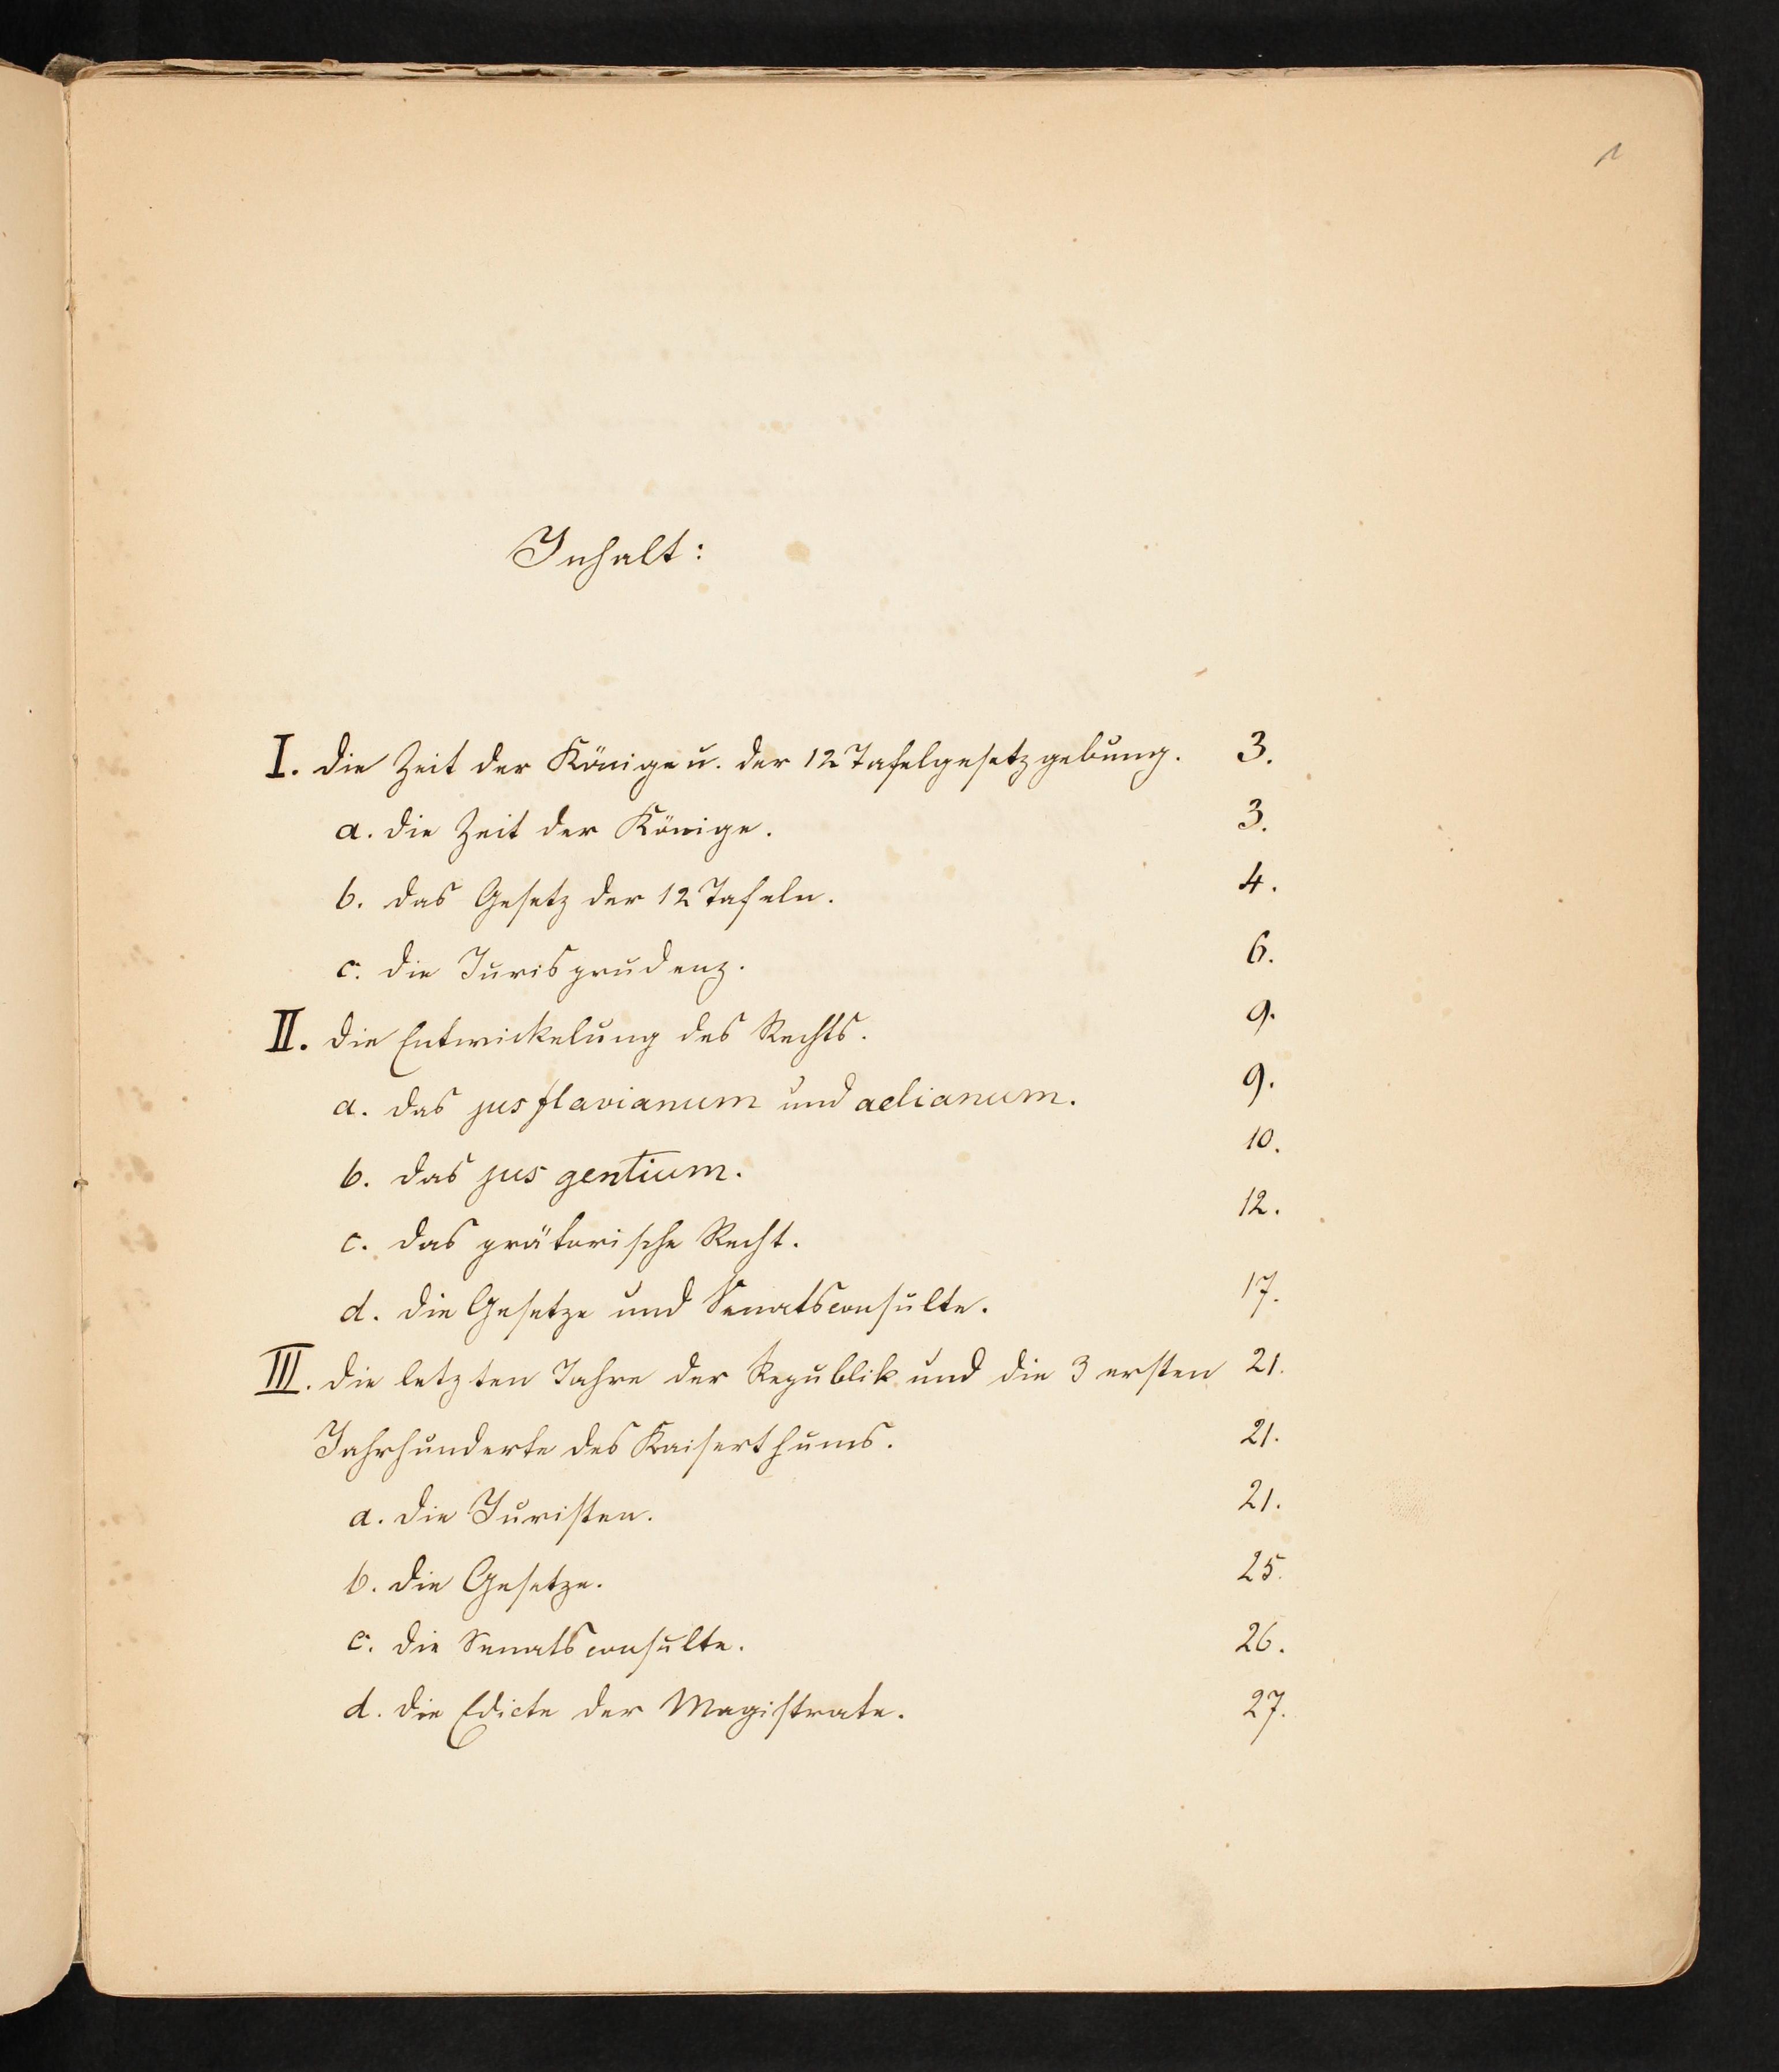 1
Inhalt:
I. die Zeit der Könige u. der 12 Tafelgesetzgebung. 3.
a. die Zeit der Könige. 3.
b. das Gesetz der 12 Tafeln. 4.
c. die Jurisprudenz. 6.
II. die Entwickelung des Rechts. 9.
a. das jus flavianum und aelianum. 9.
b. das jus gentium. 10.
c. das prätorische Recht. 12.
d. die Gesetze und Senatsconsulte. 17.
III. die letzten Jahre der Republik und die 3 ersten 21.
Jahrhunderte des Kaiserthums. 21.
a. die Juristen. 21.
b. die Gesetze. 25.
c. die Senatsconsulte. 26.
d. die Edicte der Magistrate. 27.